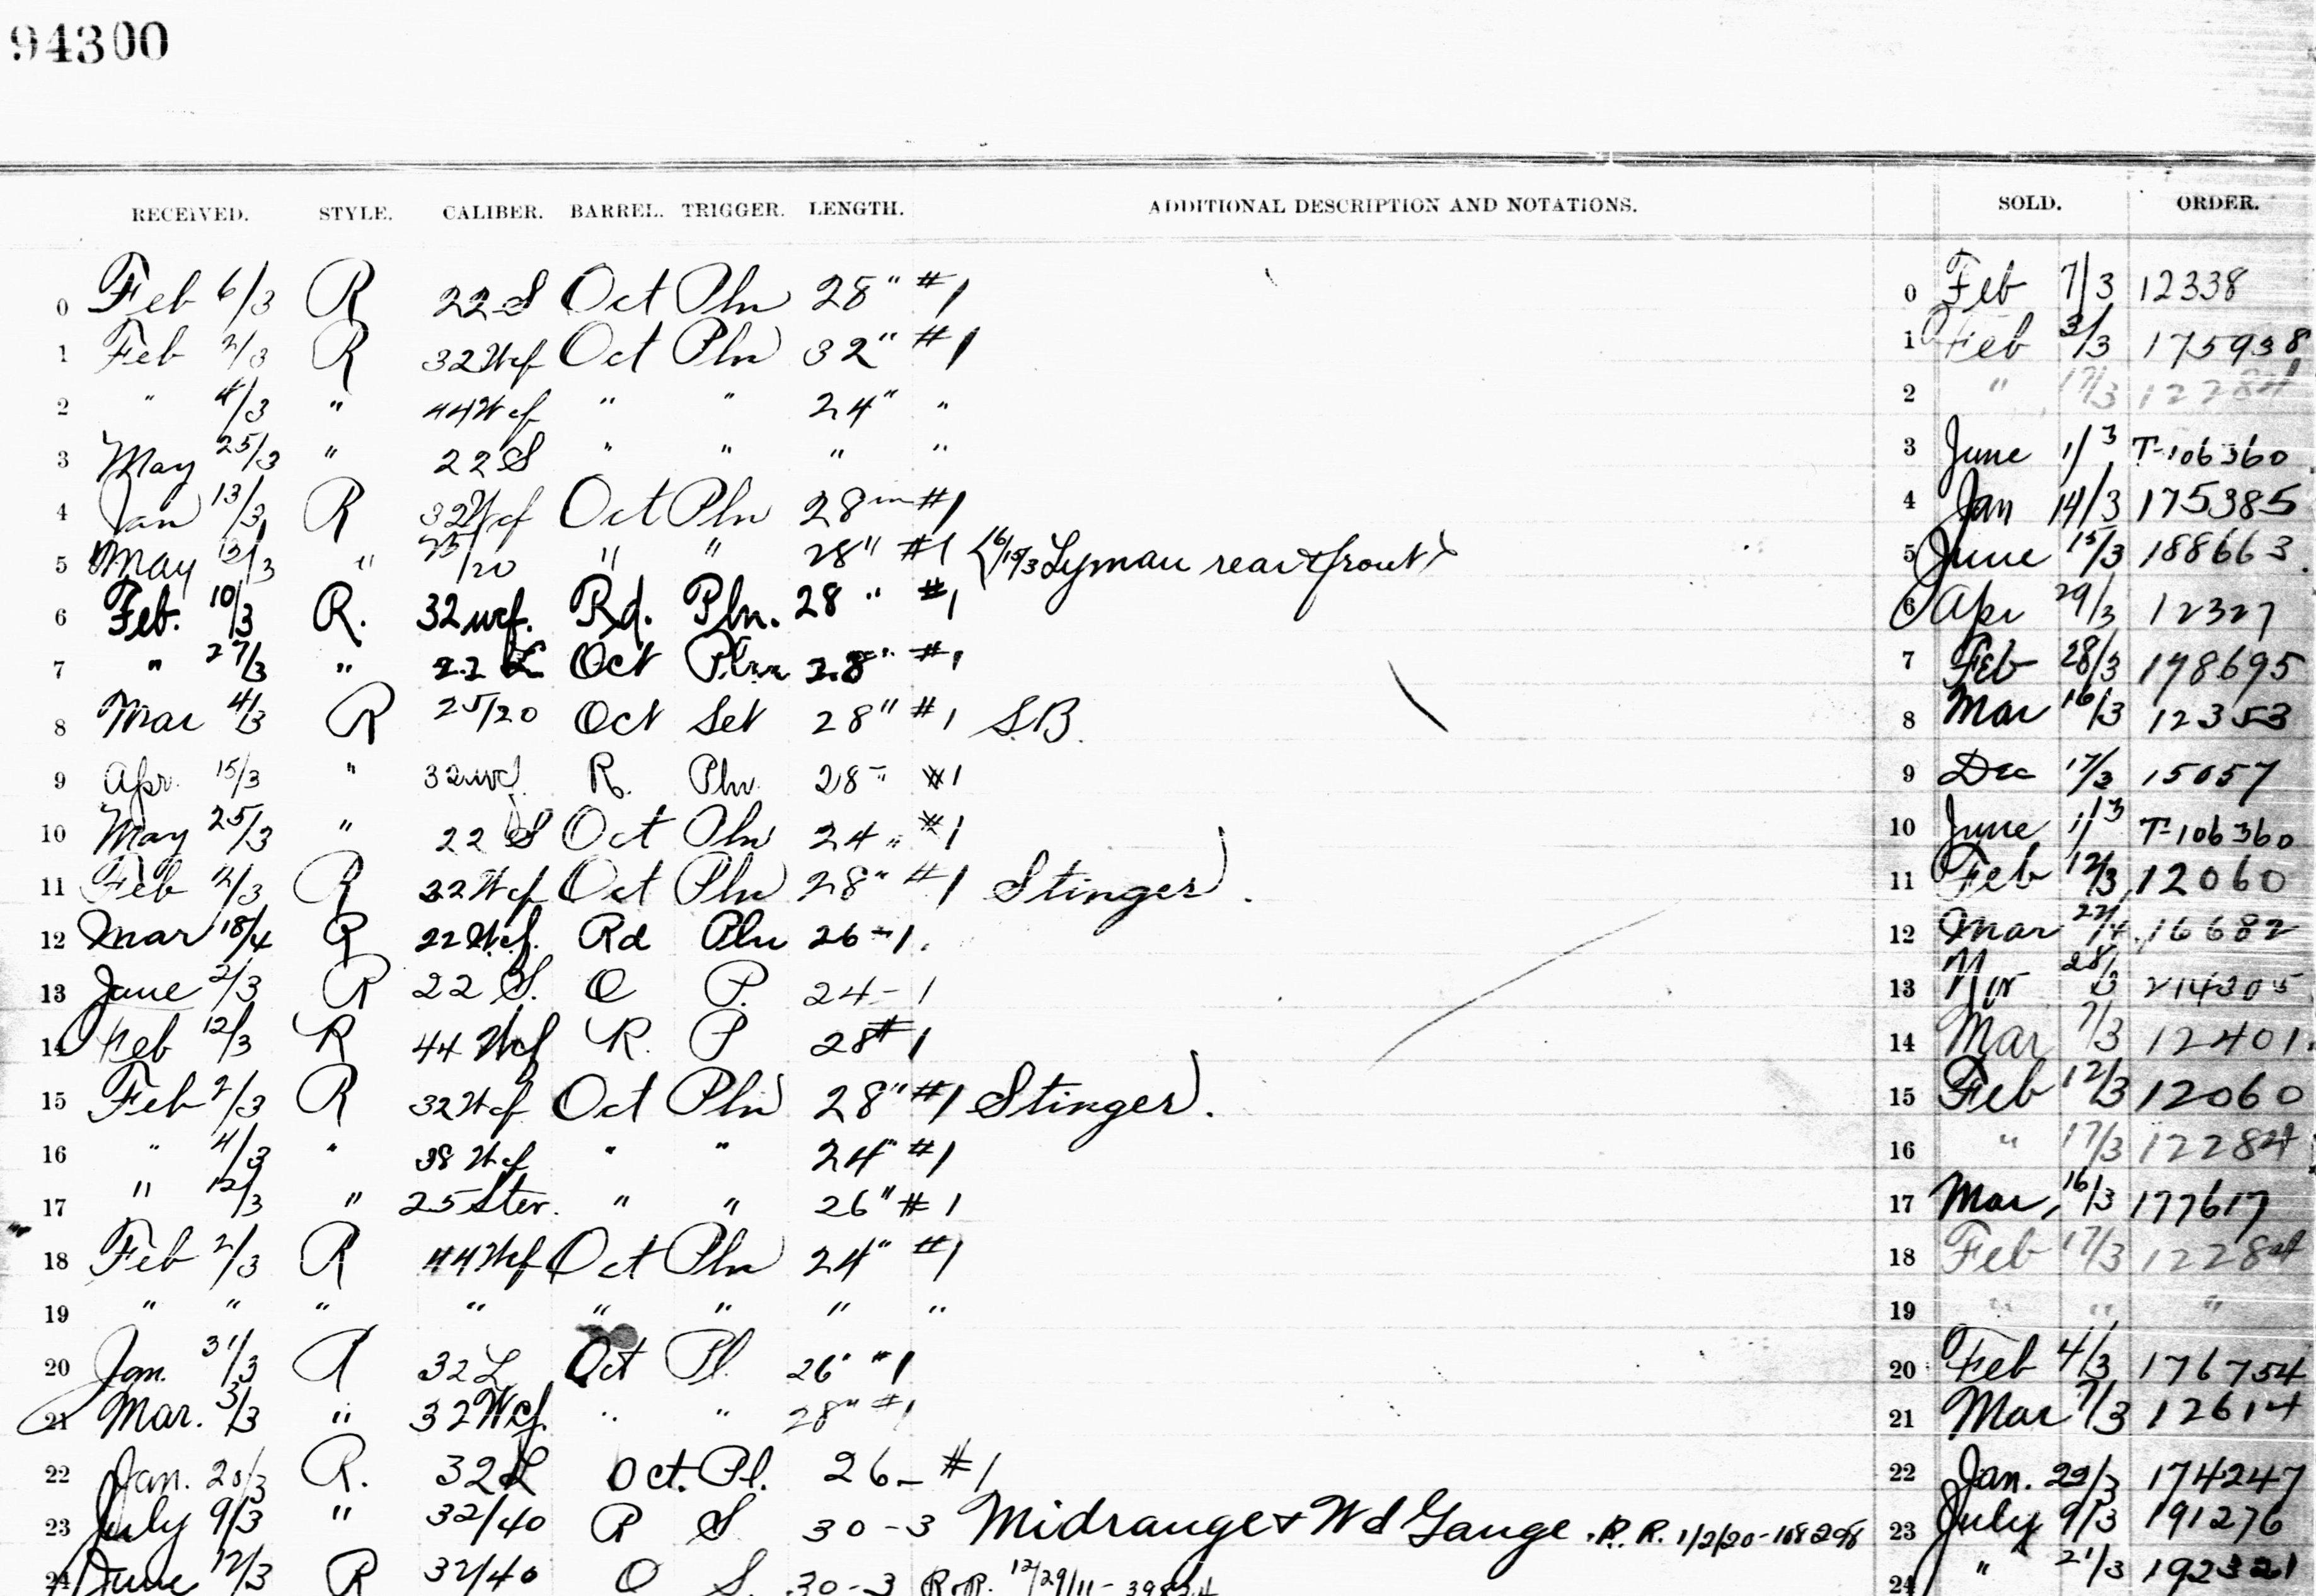 94300
RECEIVED. STYLE. CALIBER. BARREL. TRIGGER. LENGTH. ADDITIONAL DESCRIPTION AND NOTATIONS. SOLD. ORDER.
0 Feb 6/3 R 22 S Oct Pln 28" #1 0 Feb 7/3 12338
1 Feb 2/3 R 32 Wcf Oct Pln 32" #1 1 Feb 3/3 175938
2 " 4/3 " 44 Wcf " " 24" " 2 " 17/3 12284
3 May 25/3 " 22 S " " " " 3 June 1/3 T-106360
4 Jan 13/3 R 32 Wcf Oct Pln 28 in #1 4 Jan 14/3 175385
5 May 12/3 " 25/20 " " 28" #1 Lyman rear & front 5 June 15/3 188663
6 Feb. 10/3 R. 32 wcf. Rd. Pln. 28 " #1 6 Apr 29/3 12327
7 " 27/3 " 22 L Oct Pln 28" #1 7 Feb 28/3 178695
8 Mar 4/3 R 25/20 Oct Set 28" #1 S.B. 8 Mar 16/3 12353
9 Apr. 15/3 " 32 wcf R. Pln. 28" #1 9 Dec 17/3 15057
10 May 25/3 " 22 S Oct Pln 24 " #1 10 June 1/3 T-106360
11 Feb 2/3 R 32 Wcf Oct Pln 28" #1 Stinger 11 Feb 12/3 12060
12 Mar 18/4 R 22 Wcf. Rd Pln 26 - 1. 12 Mar 16682
13 June 2/3 R 22 S. O P. 24 - 1 13 Nov 28/3 214305
14 Feb 12/3 R 44 Wcf R. P 28 #1 14 Mar 7/3 12401.
15 Feb 2/3 R 32 Wcf Oct Pln 28" #1 Stinger. 15 Feb 12/3 12060
16 " 4/3 " 38 Wcf " " 24" #1 16 " 17/3 12284
17 " 12/3 " 25 Stev. " " 26" #1 17 Mar, 16/3 177617
18 Feb 2/3 R 44 Wcf Oct Pln 24" #1 18 Feb 17/3 12284
19 " " " " " " " " 19 " " "
20 Jan. 31/3 R 32 L Oct Pl. 26" #1 20 Feb 4/3 176754
21 Mar. 3/3 " 32 Wcf. " " 28" #1 21 Mar 7/3 12614
22 Jan. 20/3 R. 32 L Oct. Pl. 26 - #1 22 Jan. 22/3 174247
23 July 9/3 " 32/40 R S. 30 - 3 Midrange & Wd Gauge. R. R. 1/2/20 - 108298 23 July 9/3 191276
24 June 12/3 R 32/40 O S. 30 - 3 R.R. 12/29/11 - 24 " 21/3 192321